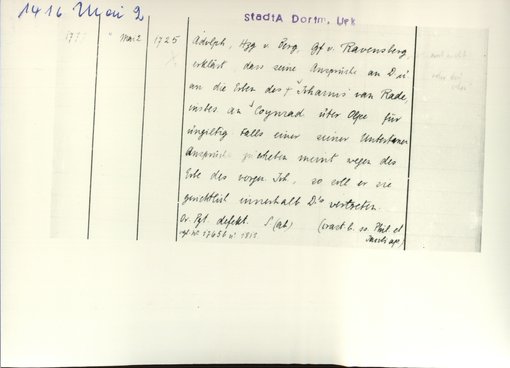 1416 Mai 2
StadtA Dortm. Urk
" Mai 2 1725 Adolph, Hzg v. Berg, Gf v. Ravensberg,
erklärt, dass seine Ansprüche an D u
an die Erben des + Johannis van Rade,
insbes. an Coynrad über Olpe für
ungiltig falls einer seiner Untertanen
Ansprüche zu haben meint wegen des
Erbe des vorgen. Joh., so soll er sie
gerichtlich innerhalb D's vertreten.
Or. Pgt. defekt. S. (ab) (crast. b. ss. Phil. et
Jacobi ap.)